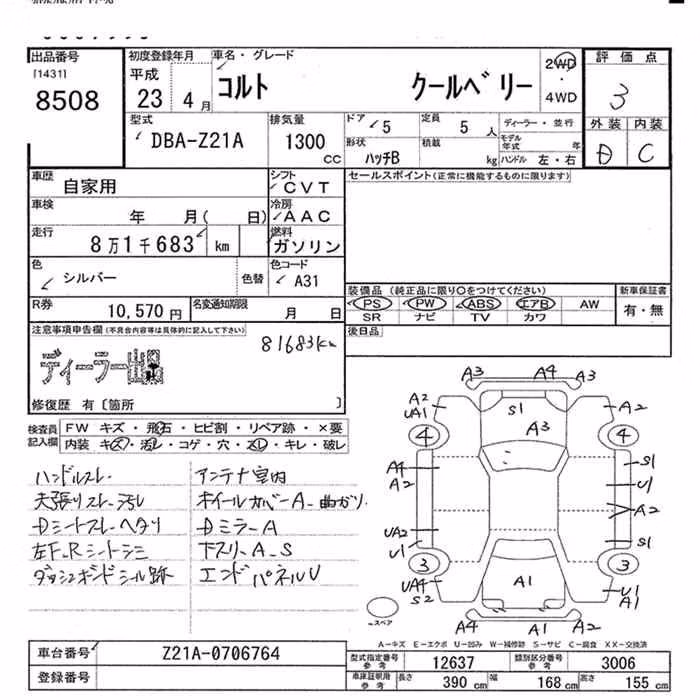 出品番号
[1431]
8508
初度登録年月
平成
23 4 月
車名・グレード
コルト クールベリー
2WD
4WD
評価点
3
外装 内装
D C
型式
DBA-Z21A
排気量
1300
CC
ドア
5
定員
5 人
形状
ハッチB
積載
kg
ディーラー・並行
モデル年式 年
ハンドル 左・右
車歴
自家用
シフト
CVT
車検
年 月( 日)
冷房
AAC
走行
8万1千683 km
燃料
ガソリン
色
シルバー
色替
色コード
A31
R券
10,570 円
名変通知期限
月 日
セールスポイント(正常に機能するものに限ります)
装備品(純正品に限り〇をつけてください)
PS PW ABS エアB AW
SR ナビ TV カワ
新車保証書
有・無
後日品
注意事項申告欄(不具合内容等は具体的に記入して下さい)
81683km
ディーラー出品
修復歴 有〔箇所 〕
検査員記入欄
FW キズ・飛石・ヒビ割・リペア跡・×要
内装 キズ・汚レ・コゲ・穴・スレ・キレ・破レ
ハンドルスレ
天張りスレ・汚レ
Dシートスレ・ヘタリ
左F.Rシートシミ
ダッシュボードシール跡
アンテナ室内
ホイールカバーA・曲がり
DミラーA
下スリ・A・S
エンドパネルU
A3 A4 A3
A2
UA1
S1
A3
A2
4
4
A4
A2
S1
U1
A2
UA2
U1
S1
3
3
UA4
S2
A1
U1
A1
A4 A1 A2
スペア
A-キズ E-エクボ U-凹み W-補修跡 S-サビ C-腐食 XX-交換済
車台番号
Z21A-0706764
登録番号
型式指定番号
参考
12637
類別区分番号
参考
3006
車庫証明用
参考
長さ 390 cm
幅 168 cm
高さ 155 cm